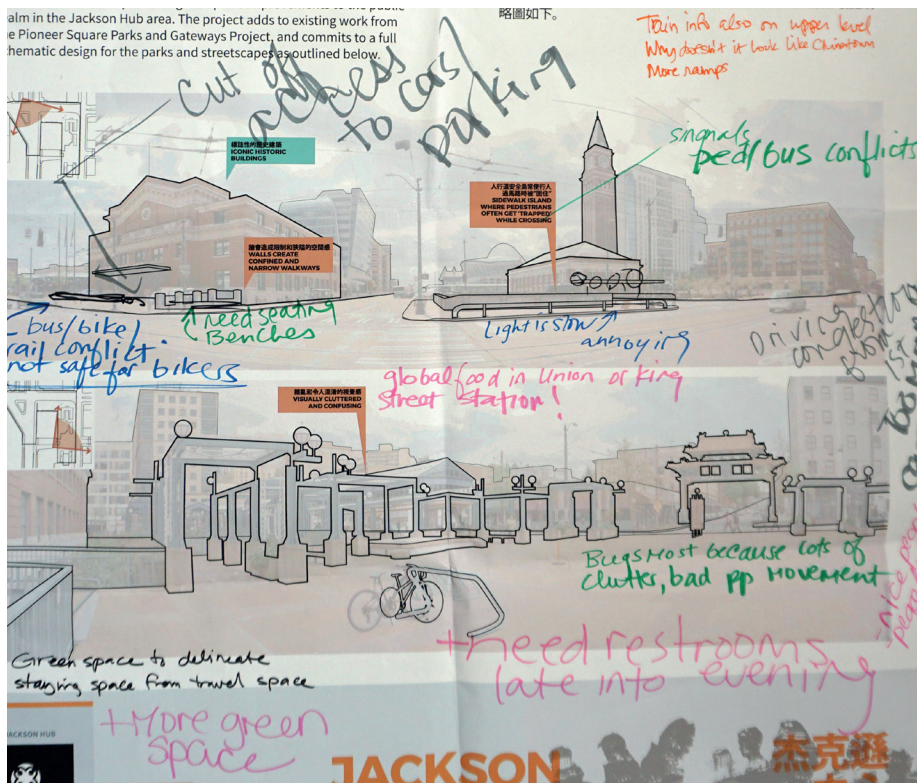 alm in the Jackson Hub area. The project adds to existing work from
e Pioneer Square Parks and Gateways Project, and commits to a full
hematic design for the parks and streetscapes as outlined below.
略圖如下。
Train info also on upper level
Why doesn't it look like Chinatown
More ramps
Cut off
access
to cars/
parking
標誌性的歷史建築
ICONIC HISTORIC
BUILDINGS
singnals
ped/bus conflicts
SIDEWALK ISLAND
WHERE PEDESTRIANS
OFTEN GET 'TRAPPED'
WHILE CROSSING
牆會造成限制和狹隘的空間感
WALLS CREATE
CONFINED AND
NARROW WALKWAYS
bus/bike/
rail conflict.
not safe for bikers
need seating
Benches
Light is slow
annoying
Driving
congestion
from
1st
global food in Union or King
Street Station!
VISUALLY CLUTTERED
AND CONFUSING
Bugs most because lots of
clutter, bad pp movement
- nice
Green space to delineate
staying space from travel space
+ need restrooms
late into evening
+ More green
space
JACKSON HUB
JACKSON
杰克遜